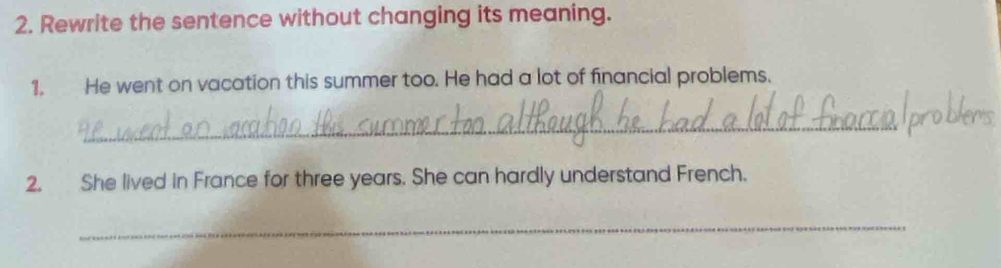 2. Rewrite the sentence without changing its meaning.
1. He went on vacation this summer too. He had a lot of financial problems.
He went on vacation this summer too although he had a lot of financial problems
2. She lived in France for three years. She can hardly understand French.